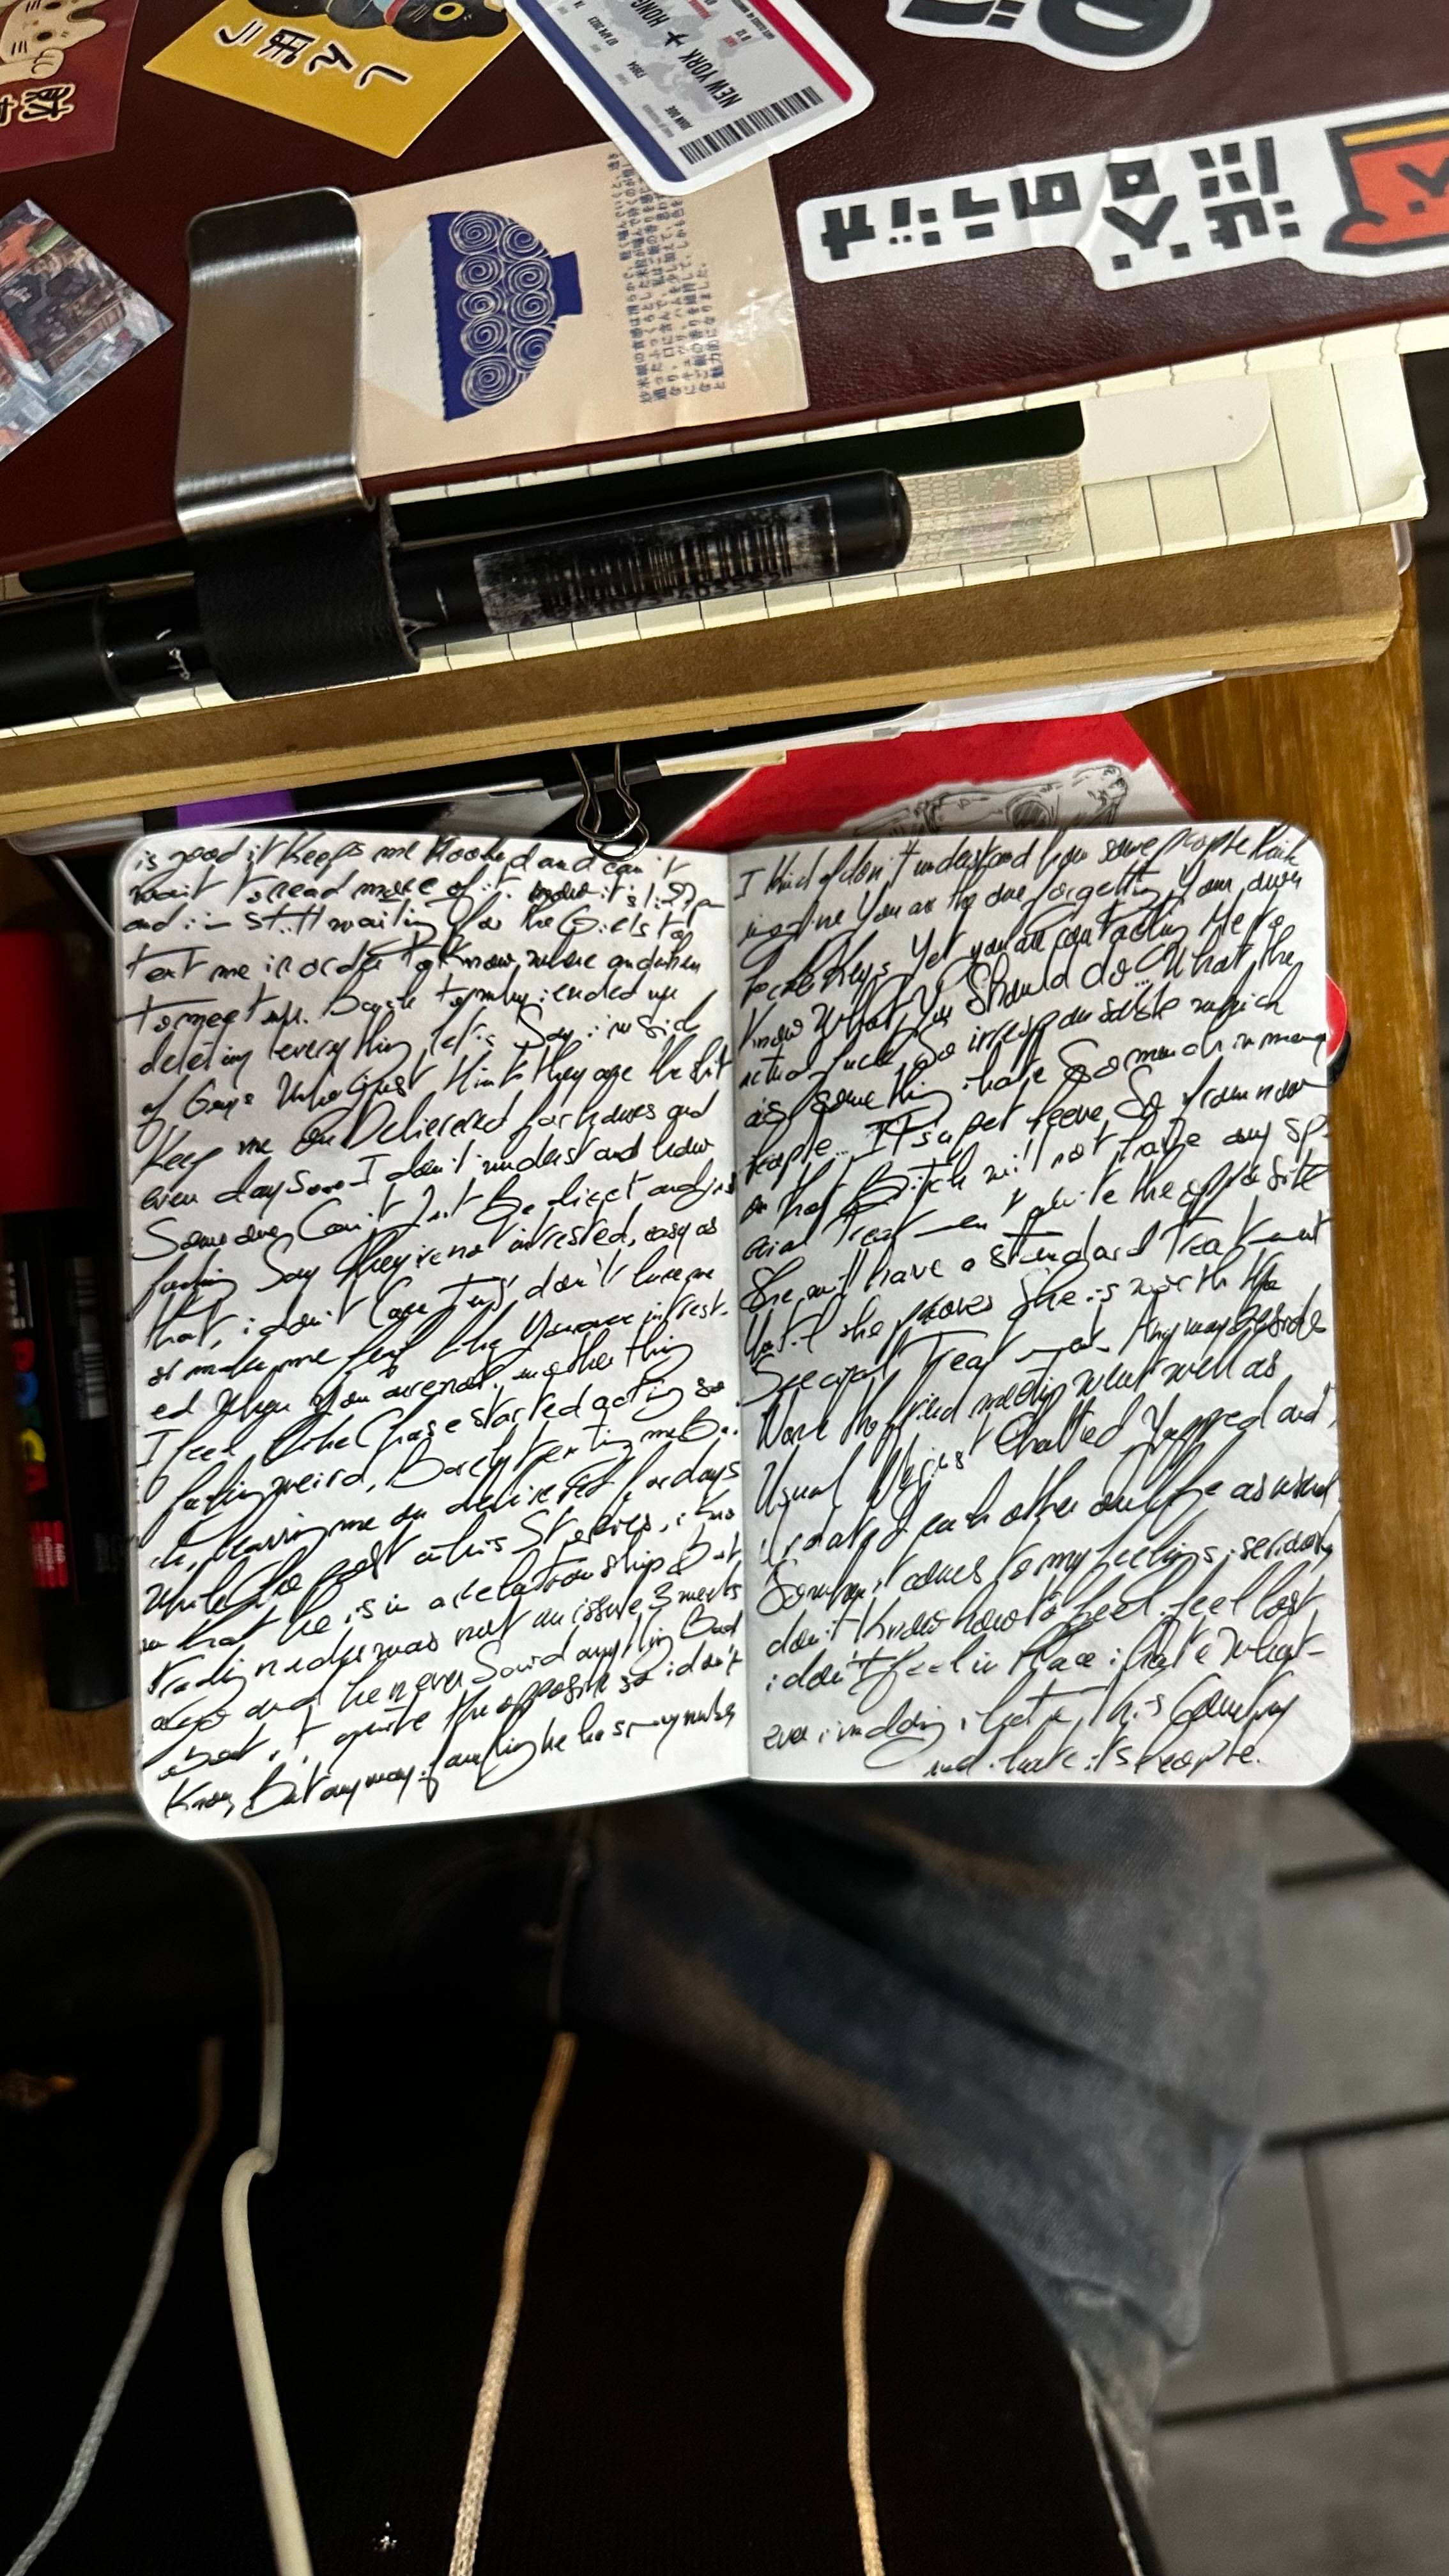 NEW YORK ✈ HONG
渋谷
is good it keeps me Hooked and can't
wait to read more of it. now it's 1:27pm
and i'm still waiting for the Girls to
text me in order to know where and when
to meet up. Back to why i ended up
deleting everything, let's Say i'm sick
of Guys Who just think they are the shit
Keep me on Delivered for hours and
even days... I don't understand how
Someone Can't Just Be direct and just
fucking Say they're not intrested, easy as
that, i don't Care Just don't lure me
or make me feel like You are intrest-
ed When you are not, another thing
I feel like Chase started acting so
fucking weird, Barely texting me Ba
ck, leaving me on delivered for days
While he post on his Stories, i kno
w that he is in a relationship But
trading nudes was not an issue 3 weeks
ago and he never Said anything Bad
about it, quite the opposite so i don't
Know, But anyway if anything he has my number
I think i don't understand how some people think
imagine You are the one forgetting Your own
Keys Yet you are contacting Me to
Know What You Should do... What the
actual fuck, So irresponsable which
is something i hate So much in many
People... It's a pet peeve, So from now
on that Bitch will not have any sp-
ecial Treatment quite the opposite
She will have a standard Treatment
Until she proves She is worth the
Special Treatment. Anyway Besides
Work the friend meeting went well as
Usual We just Chatted Yapped and
Updated each other on life as usual
So when it comes to my feelings i seriously
don't Know how to feel, i feel lost
i don't feel in Place i hate What-
ever i'm doing, i hate this Country
and i hate it's people.